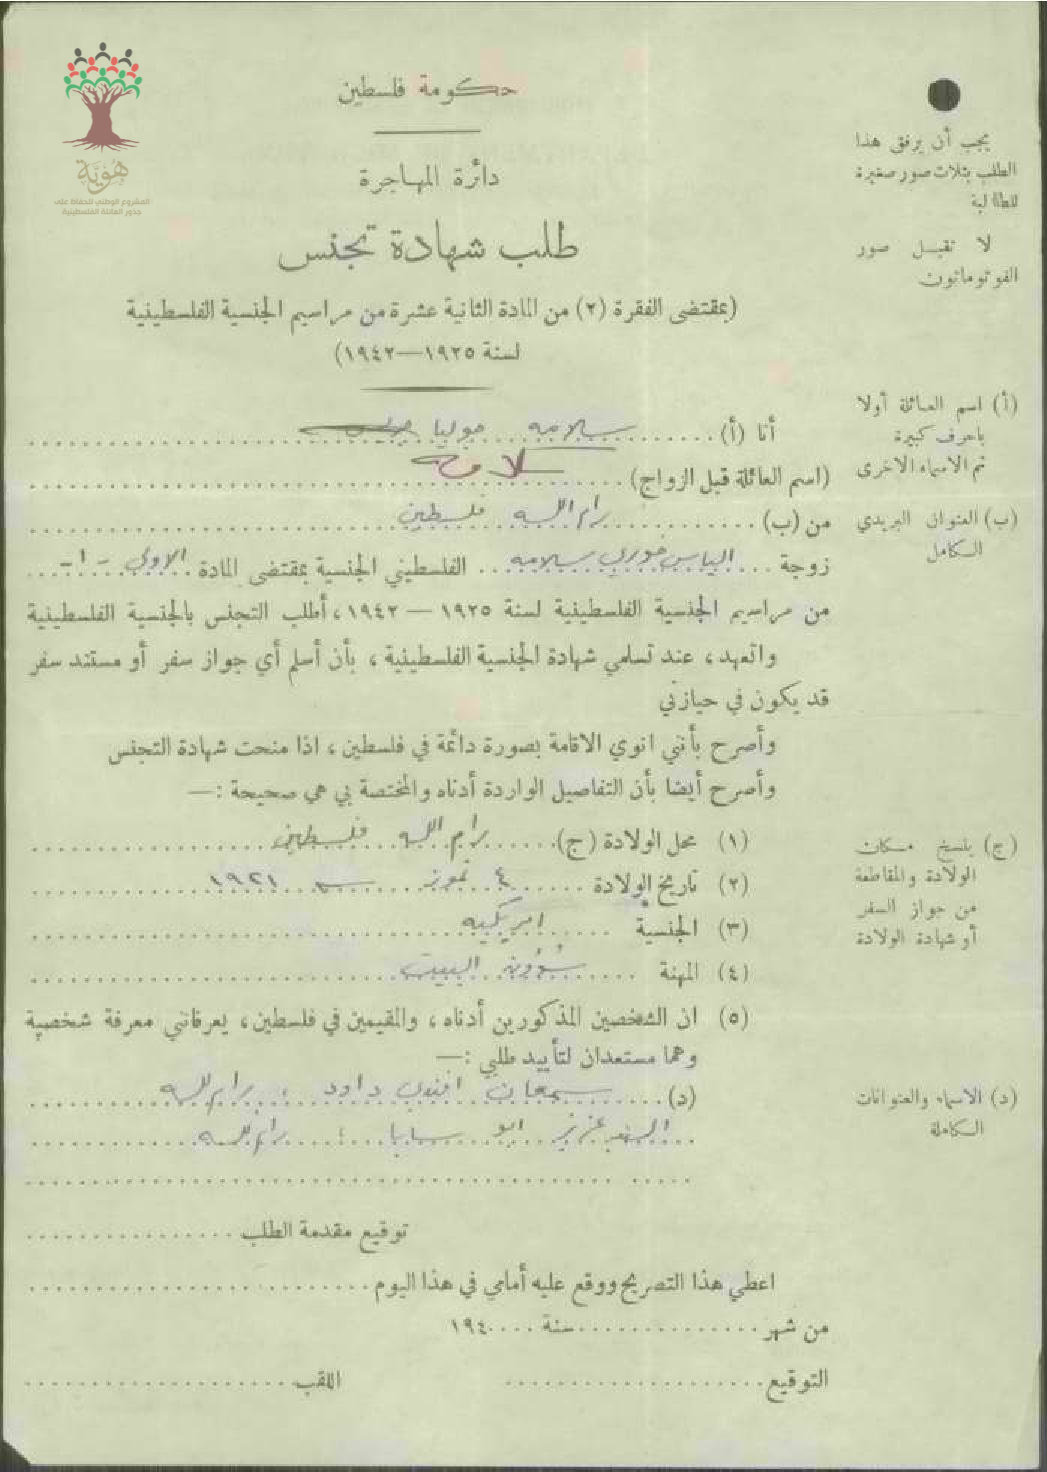 هوية
المشروع الوطني للحفاظ على
جذور العائلة الفلسطينية
حكومة فلسطين
دائرة المهاجرة
طلب شهادة تجنس
(بمقتضى الفقرة (٢) من المادة الثانية عشرة من مراسيم الجنسية الفلسطينية
لسنة ١٩٢٥—١٩٤٢)
يجب أن يرفق هذا
الطلب بثلاث صور صغيرة
للطالبة
لا تقبل صور
الفوتوماتون
(أ) اسم العائلة أولا
باحرف كبيرة
ثم الاسماء الاخرى
(ب) العنوان البريدي
الكامل
أنا (أ) سلامه جوليا
(اسم العائلة قبل الزواج) سلامه
من (ب) رام الله فلسطين
زوجة الياس خوري سلامه الفلسطيني الجنسية بمقتضى المادة الاولى -١-
من مراسيم الجنسية الفلسطينية لسنة ١٩٢٥ — ١٩٤٢، أطلب التجنس بالجنسية الفلسطينية
واتعهد، عند تسلمي شهادة الجنسية الفلسطينية، بأن أسلم أي جواز سفر أو مستند سفر
قد يكون في حيازتي
وأصرح بأنني انوي الاقامة بصورة دائمة في فلسطين، اذا منحت شهادة التجنس
وأصرح أيضا بأن التفاصيل الواردة أدناه والمختصة بي هي صحيحة :—
(١) محل الولادة (ج) رام الله فلسطين
(٢) تاريخ الولادة ٤ تموز سنة ١٩٢١
(٣) الجنسية امريكيه
(٤) المهنة شؤون البيت
(ج) ينسخ مكان
الولادة والمقاطعة
من جواز السفر
أو شهادة الولادة
(٥) ان الشخصين المذكورين أدناه، والمقيمين في فلسطين، يعرفانني معرفة شخصية
وهما مستعدان لتأييد طلبي :—
(د) سمعان افندي داود ، رام الله
السيد عزيز ابو سابا ، رام الله
(د) الاسماء والعنوانات
الكاملة
توقيع مقدمة الطلب
اعطي هذا التصريح ووقع عليه أمامي في هذا اليوم
من شهر سنة ١٩٤٠
التوقيع اللقب